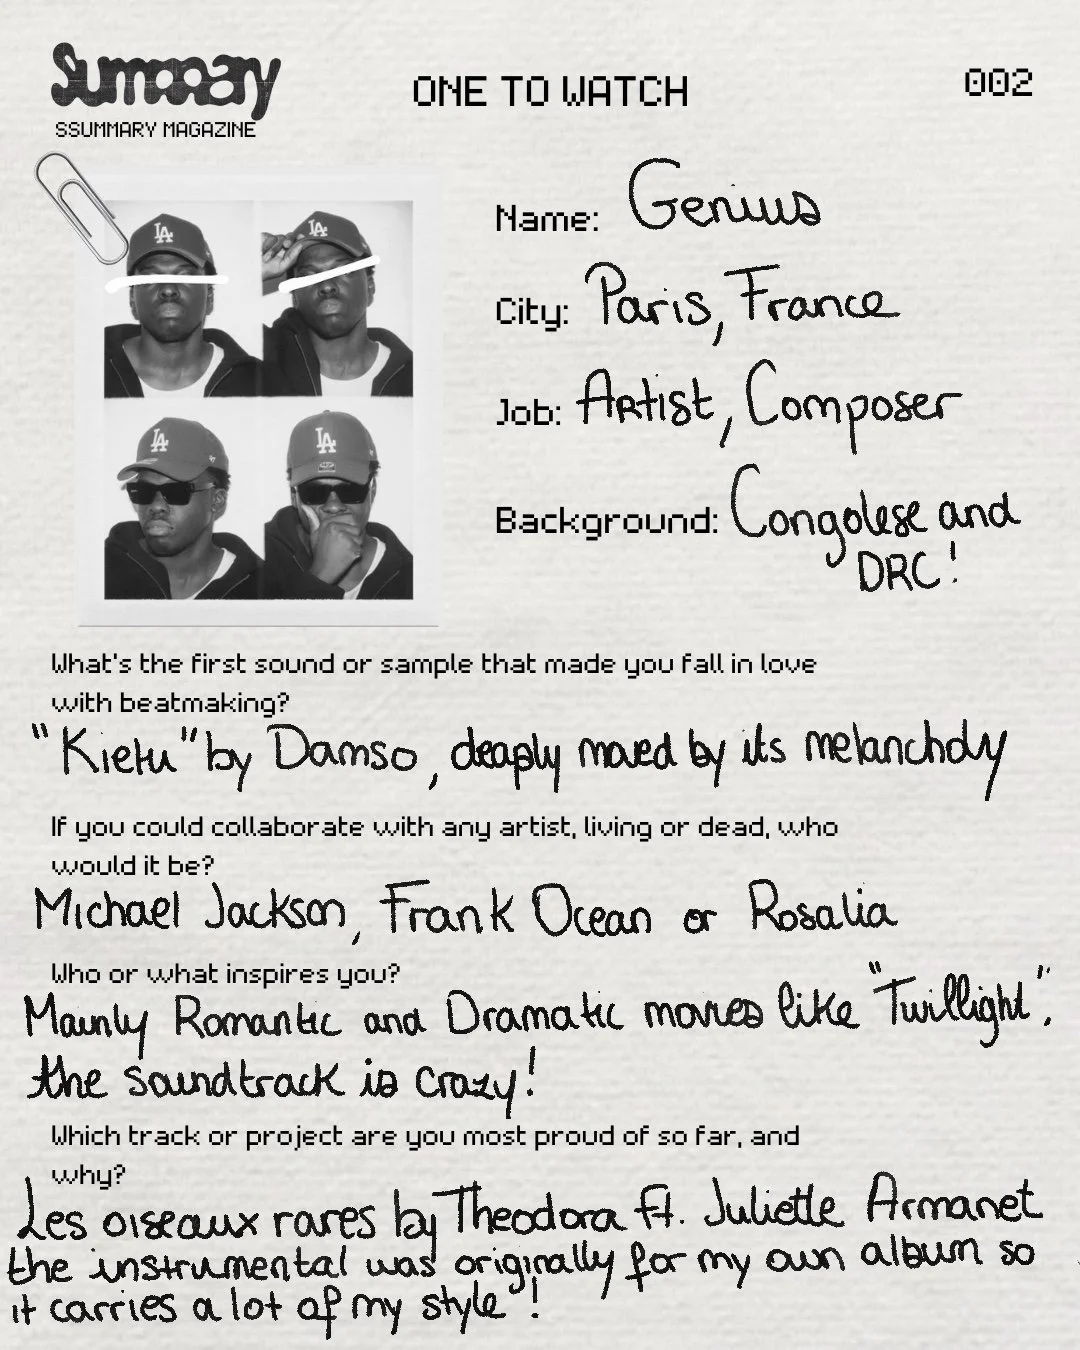 Summary
SSUMMARY MAGAZINE
ONE TO WATCH
002
LA
LA
LA
LA
Name: Genius
City: Paris, France
Job: Artist, Composer
Background: Congolese and
DRC!
What's the first sound or sample that made you fall in love
with beatmaking?
"Kietu" by Damso, deaply moved by its melancholy
If you could collaborate with any artist, living or dead, who
would it be?
Michael Jackson, Frank Ocean or Rosalia
Who or what inspires you?
Mainly Romantic and Dramatic movies like "Twillight".
the soundtrack is crazy!
Which track or project are you most proud of so far, and
why?
Les oiseaux rares by Theodora ft. Juliette Armanet
the instrumental was originally for my own album so
it carries a lot of my style"!